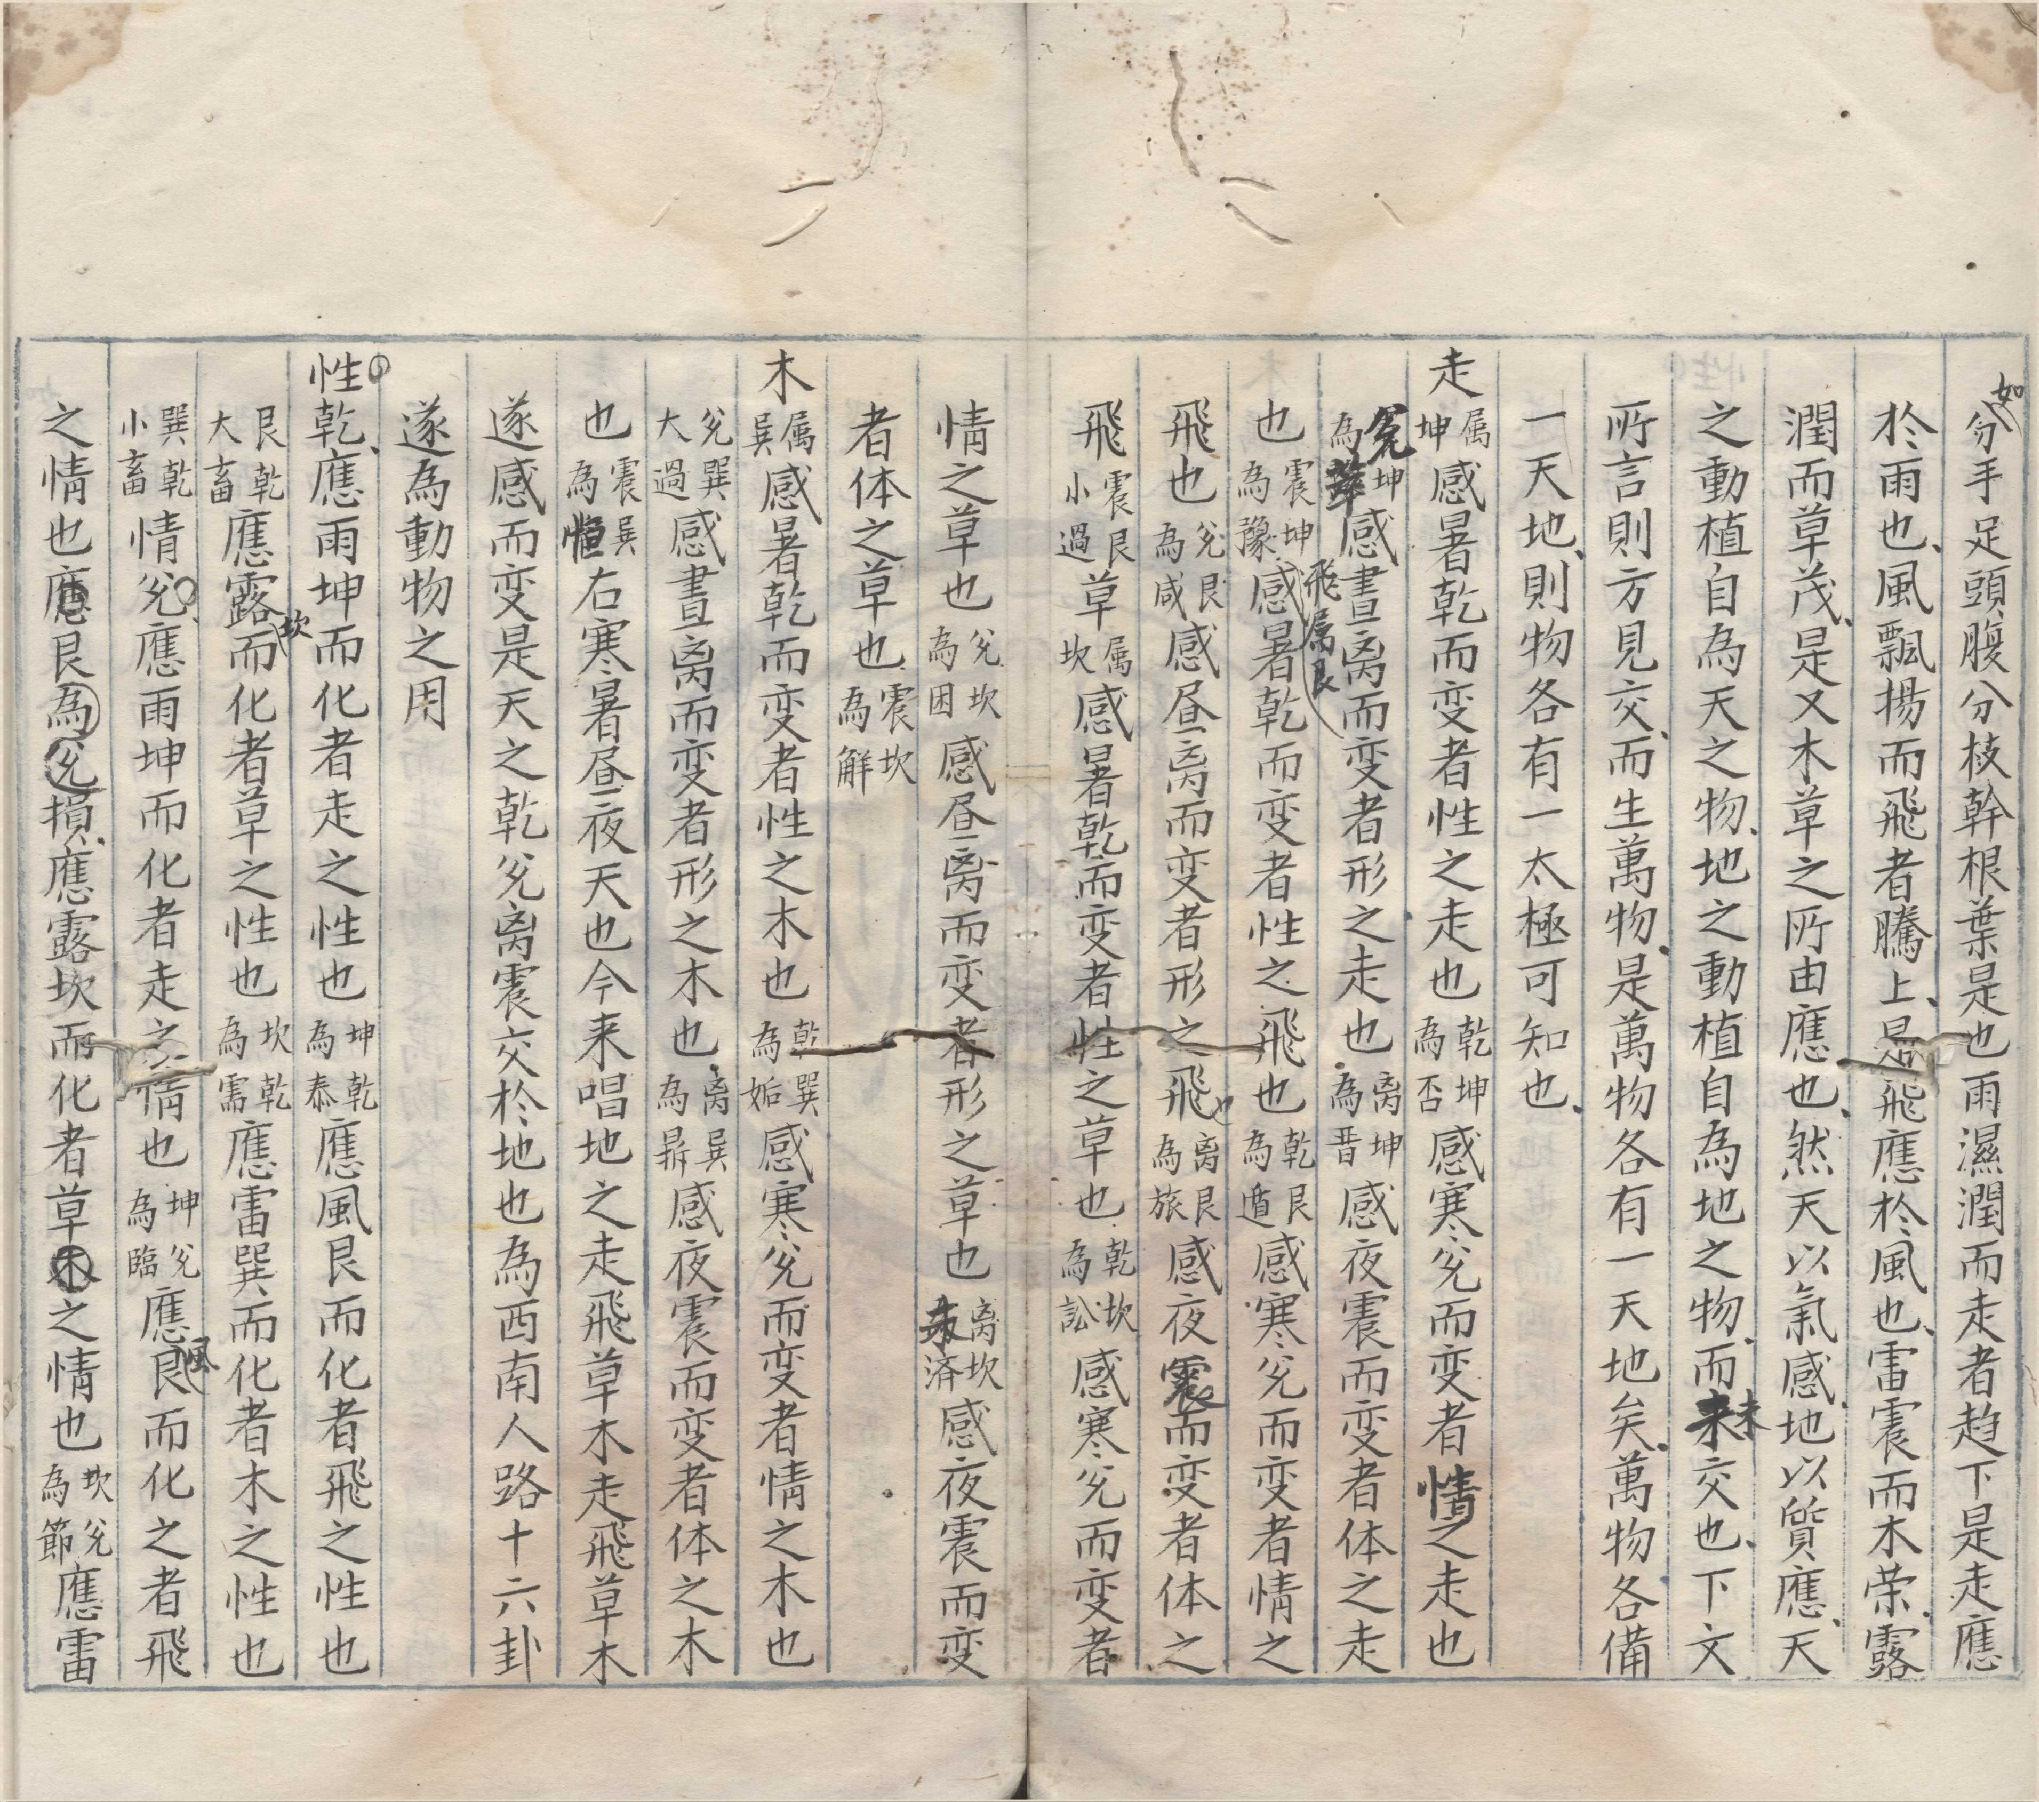 如分手足頭腹分枝幹根葉是也雨濕潤而走者趋下是走應
於雨也風飄揚而飛者騰上是飛應於風也雷震而木荣露
潤而草茂是又木草之所由應也然天以氣感地以質應天
之動植自為天之物地之動植自為地之物而未交也下文
所言則方見交而生萬物是萬物各有一天地矣萬物各備
一天地則物各有一太極可知也
走属坤感暑乾而变者性之走也乾坤為否感寒兊而变者情之走也
兊坤為萃感晝离而变者形之走也离坤為晋感夜震而变者体之走
也震坤為豫飛属艮感暑乾而变者性之飛也乾艮為遁感寒兊而变者情之
飛也兊艮為咸感昼离而变者形之飛也离艮為旅感夜震而变者体之
飛震艮小過草属坎感暑乾而变者性之草也乾坎為訟感寒兊而变者
情之草也兊坎為困感昼离而变者形之草也离坎未済感夜震而变
者体之草也震坎為解
木属巽感暑乾而变者性之木也乾巽為姤感寒兊而变者情之木也
兊巽大過感晝离而变者形之木也离巽為鼎感夜震而变者体之木
也震巽為恒右寒暑昼夜天也今来唱地之走飛草木走飛草木
遂感而变是天之乾兊离震交於地也為西南人路十六卦
遂為動物之用
性乾應雨坤而化者走之性也坤乾為泰應風艮而化者飛之性也
艮乾大畜應露坎而化者草之性也坎乾為需應雷巽而化者木之性也
巽乾小畜情兊應雨坤而化者走之情也坤兊為臨應風艮而化之者飛
之情也應艮為兊損應露坎而化者草木之情也坎兊為節應雷